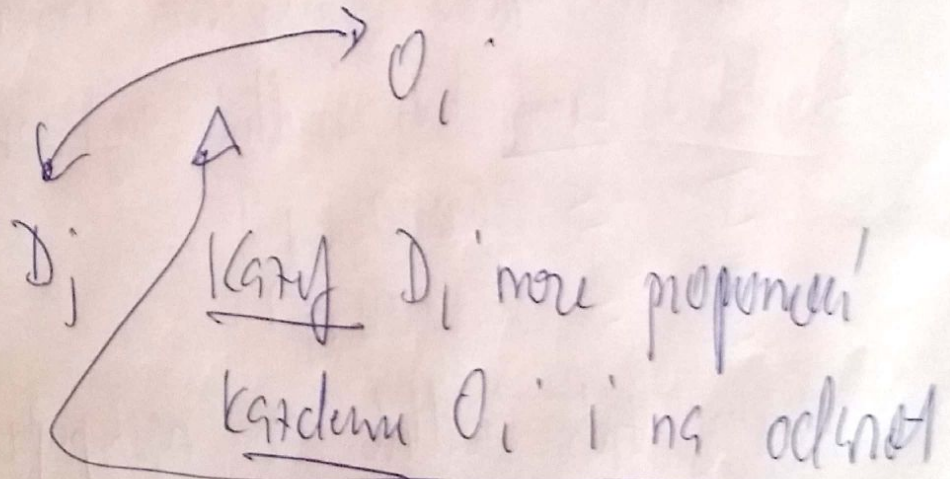 O_i
D_j
Każdy D_i może proponować
każdemu O_i i na odwrót